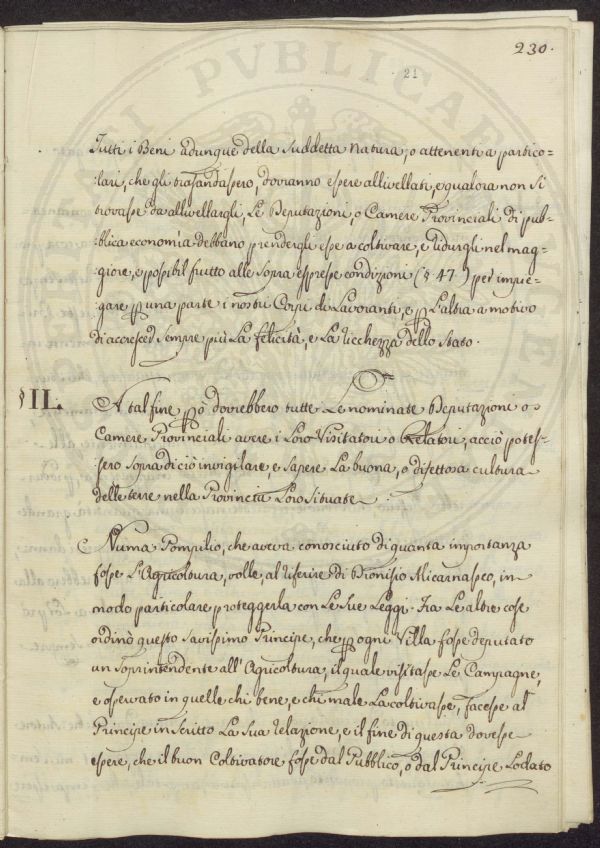 230.
21
Tutti i Beni adunque della Suddetta natura, o attenenti a partico=
=lari, che gli trasandassero, dovranno essere allivellati, e qualora non si
trovasse da allivellargli, Le Deputazioni, o Camere Provinciali di pub=
=blica economìa debbano prendergli esse a coltivare, e ridurgli nel mag=
=giore, e possibil frutto alle sopra espresse condizioni (§ 47) per impie=
=gare per una parte i nostri Corpi de Lavoranti, e per L'altra a motivo
di accrescer sempre più La felicità, e La ricchezza dello Stato.
§ II. A tal fine però dovrebbero tutte Le nominate Deputazioni o
Camere Provinciali avere i Loro Visitatori o Relatori, acciò potes=
=sero sopra di ciò invigilare, e sapere La buona, o difettosa cultura
delle terre nella Provincia Loro situate.
Numa Pompilio, che aveva conosciuto di quanta importanza
fosse L'Agricoltura, volle, al riferire di Dionisio Alicarnasseo, in
modo particolare proteggerla con Le sue Leggi. Tra Le altre cose
ordinò questo savissimo Principe, che per ogni Villa fosse deputato
un soprintendente all'Agricoltura, il quale visitasse Le Campagne,
e osservato in quelle chi bene, e chi male La coltivasse, facesse al
Principe in scritto La sua relazione, e il fine di questa dovesse
essere, che il buon Coltivatore fosse dal Pubblico, o dal Principe Lodato